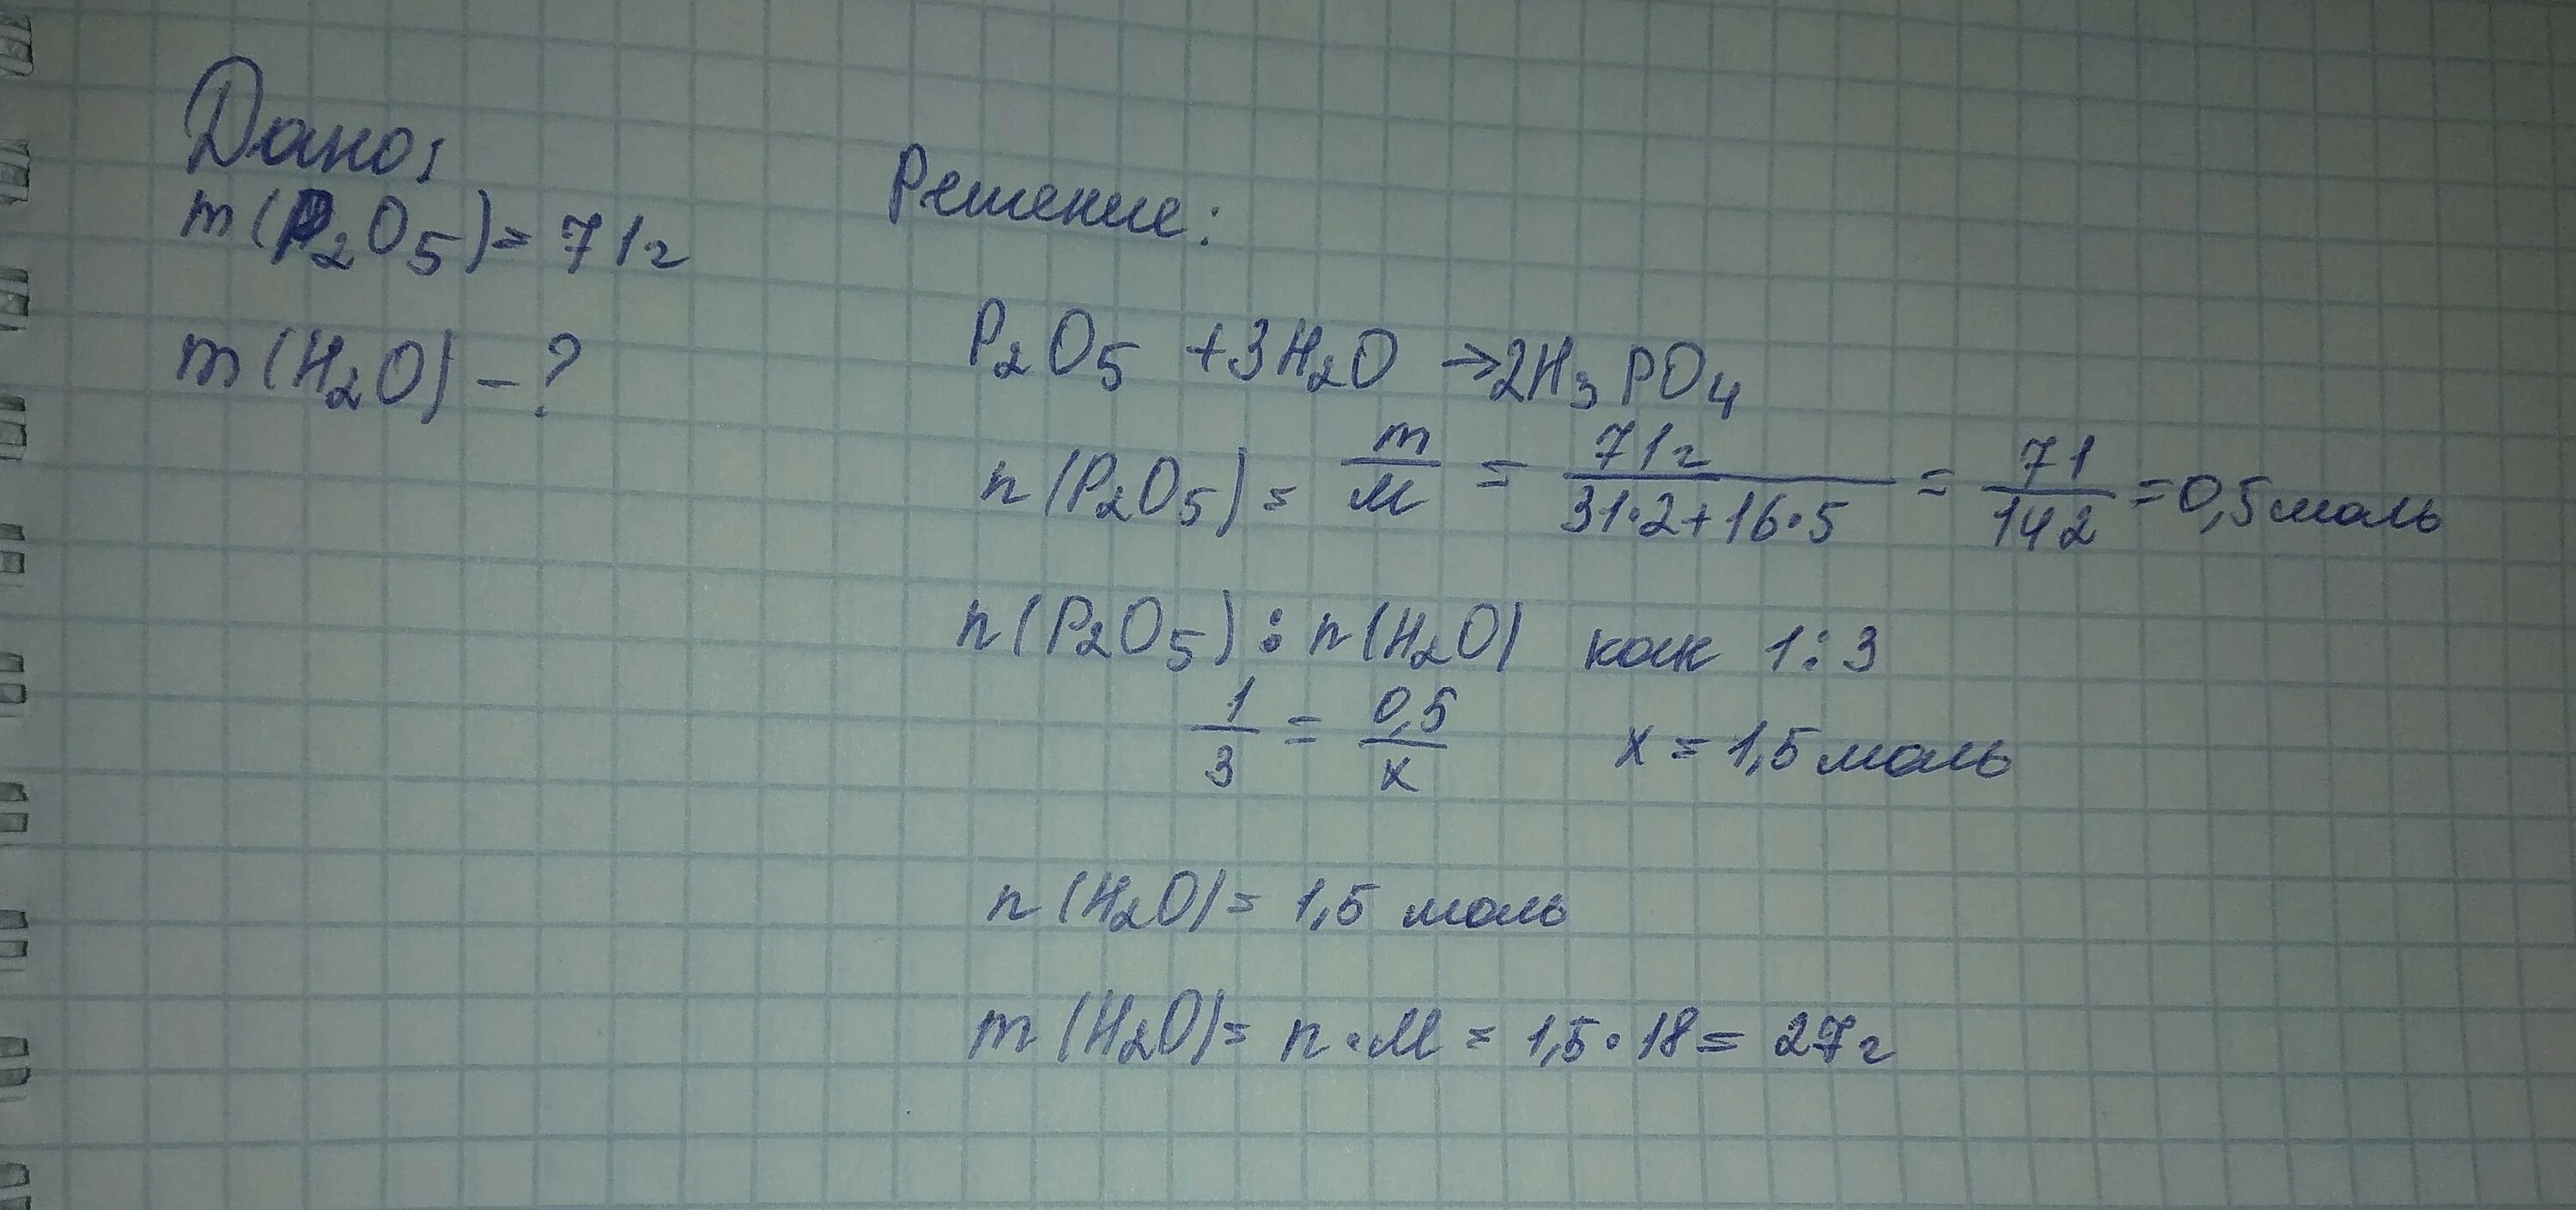 Дано:
m(P₂O₅) = 71г
m(H₂O) - ?
Решение:
P₂O₅ + 3H₂O → 2H₃PO₄
n(P₂O₅) = m/M = 71г/(31·2+16·5) = 71/142 = 0,5 моль
n(P₂O₅) : n(H₂O) как 1:3
1/3 = 0,5/x x = 1,5 моль
n(H₂O) = 1,5 моль
m(H₂O) = n·M = 1,5·18 = 27г